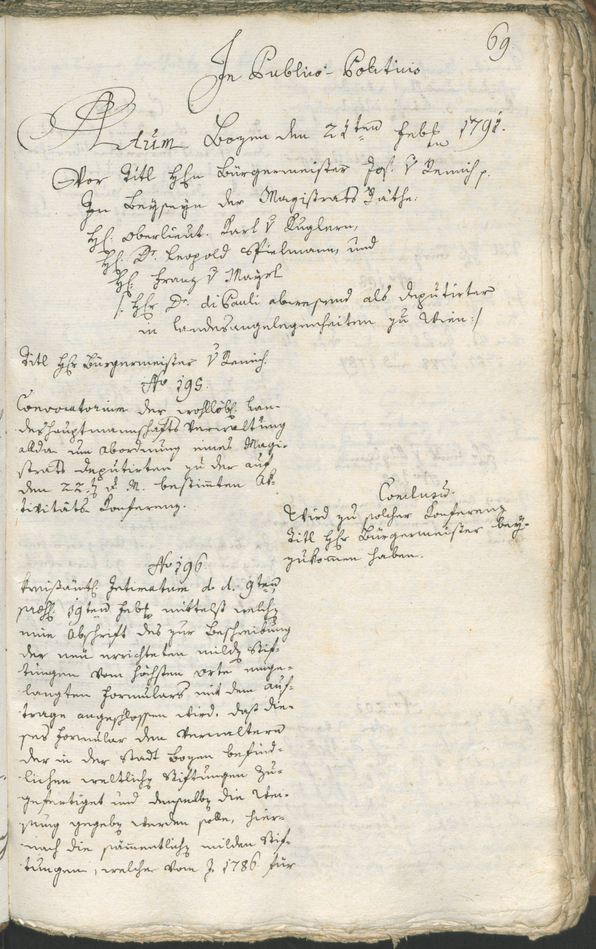 69
In Publico-Politicis
Actum Bozen den 21ten Febr 1791.
Vor Titl Hhn Bürgermeister Jos. v Remich p.
In Beyseyn der Magistrats Räthe.
Hl. Oberlieut. Karl v Kuglern,
Hl. Dr. Leopold Spielmann, und
Hl. Franz v Mayrl
/: Hhr Dr. di Pauli abwesend als deputirter
in Landesangelegenheiten zu Wien :/
Titl Hhr Bürgermeister v Remich.
No 195.
Convocatorium der wohllöbl. Lan-
deshauptmannschafts Verwaltung
allda um Abordnung eines Magi-
strats deputirten zu der auf
den 22. d. M. bestimten Ak-
tivitäts Konferenz.
Conclusu.
Wird zu solcher Konferenz
Titl Hhr Bürgermeister bey-
zukommen haben.
No 196.
Kreisämtl. Intimatum d. d. 9ten
praes. 19ten Febr mittelst welch
eine Abschrift des zur Beschreibung
der neu errichteten mildn Stif-
tungen vom höchsten Orte einge-
langten Formulars mit dem Auf-
trage angeschlossen wird, daß die-
ses Formular den Verwaltern
der in der Stadt Bozen befind-
lichen weltlichn Stiftungen zu-
gefertiget und denselbn die Wei-
sung gegebn werden solle, hier-
nach die sämmentlichn milden Stif-
tungen, welche vom J. 1786 für